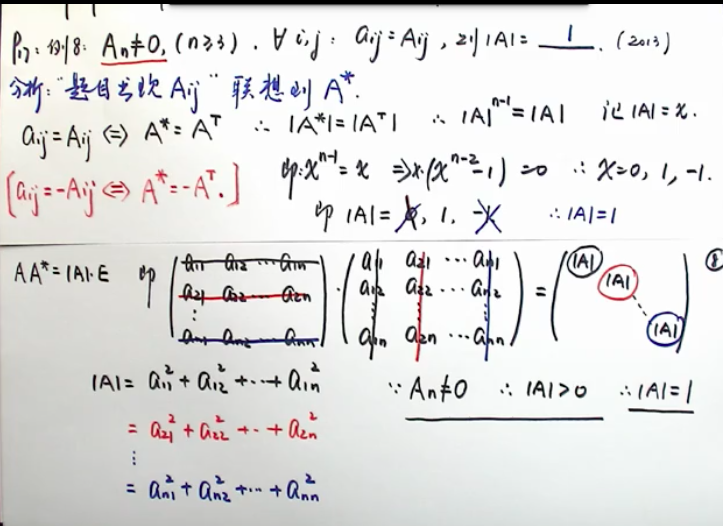 P₁₇: 例8: Aₙ≠0, (n≥3). ∀ i,j: aᵢⱼ=Aᵢⱼ, 则|A|= 1 . (2013)
分析:"题目出现Aᵢⱼ"联想到A*.
aᵢⱼ=Aᵢⱼ ⇔ A*=Aᵀ ∴ |A*|=|Aᵀ| ∴ |A|ⁿ⁻¹=|A| 记|A|=x.
[aᵢⱼ=-Aᵢⱼ ⇔ A*=-Aᵀ.] 即:xⁿ⁻¹=x ⇒x·(xⁿ⁻²-1)=0 ∴ x=0, 1, -1.
即 |A|=0, 1, -1 ∴|A|=1
AA*=|A|·E 即 (a₁₁ a₁₂ ⋯ a₁ₙ
a₂₁ a₂₂ ⋯ a₂ₙ
⋮
aₙ₁ aₙ₂ ⋯ aₙₙ) · (a₁₁ a₂₁ ⋯ aₙ₁
a₁₂ a₂₂ ⋯ aₙ₂
⋮ ⋮ ⋮
a₁ₙ a₂ₙ ⋯ aₙₙ) = (|A|
|A|
⋱
|A|)
|A|= a₁₁²+a₁₂²+⋯+a₁ₙ² ∵ Aₙ≠0 ∴ |A|>0 ∴|A|=1
= a₂₁²+a₂₂²+⋯+a₂ₙ²
⋮
= aₙ₁²+aₙ₂²+⋯+aₙₙ²